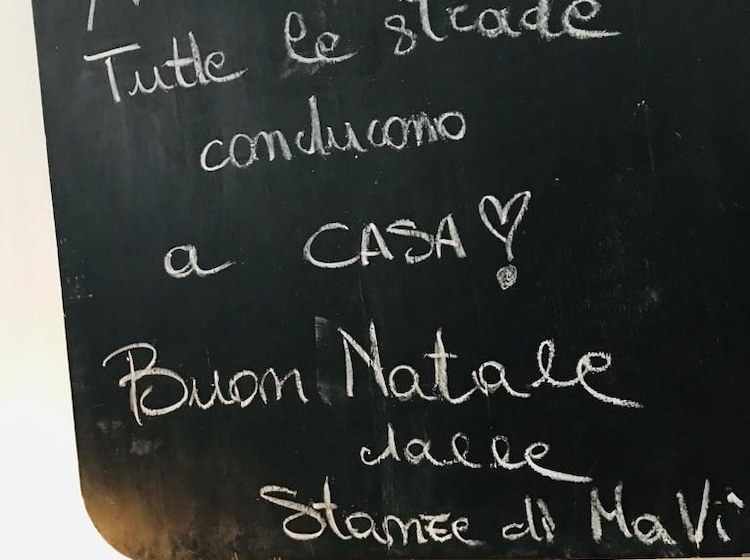 Tutte le strade
conducono
a CASA!
Buon Natale
dalle
Stanze di MaVì